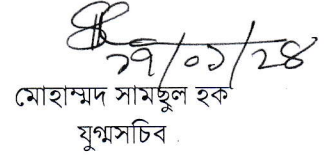 ১৭/০১/২৪
মোহাম্মদ সামছুল হক
যুগ্মসচিব